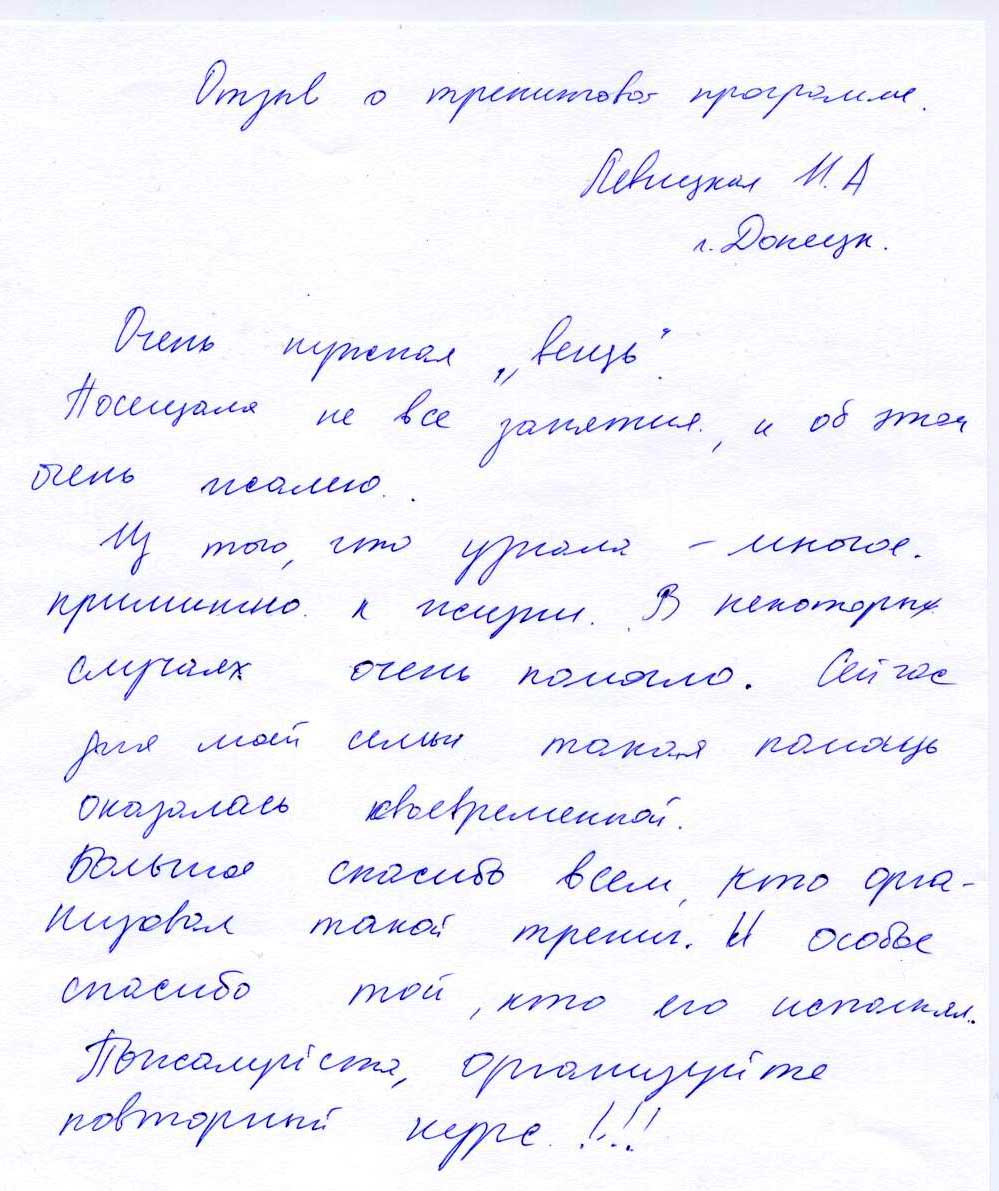 Отзыв о тренинговой программе.
Левицкая И.А
г. Донецк.
Очень нужная „вещь"
Посещала не все занятия, и об этом
очень жалею.
Из того, что узнала – многое.
применимо к жизни. В некоторых
случаях очень помогло. Сейчас
для моей семьи такая помощь
оказалась своевременной.
Большое спасибо всем, кто орга-
низовал такой тренинг. И особое
спасибо той, кто его исполнял.
Пожалуйста, организуйте
повторный курс. !!!!